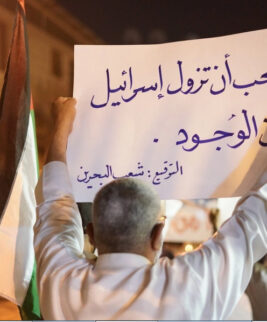 جب أن تزول إسرائيل
ن الوُجود .
التوقيع : شعب البحرين